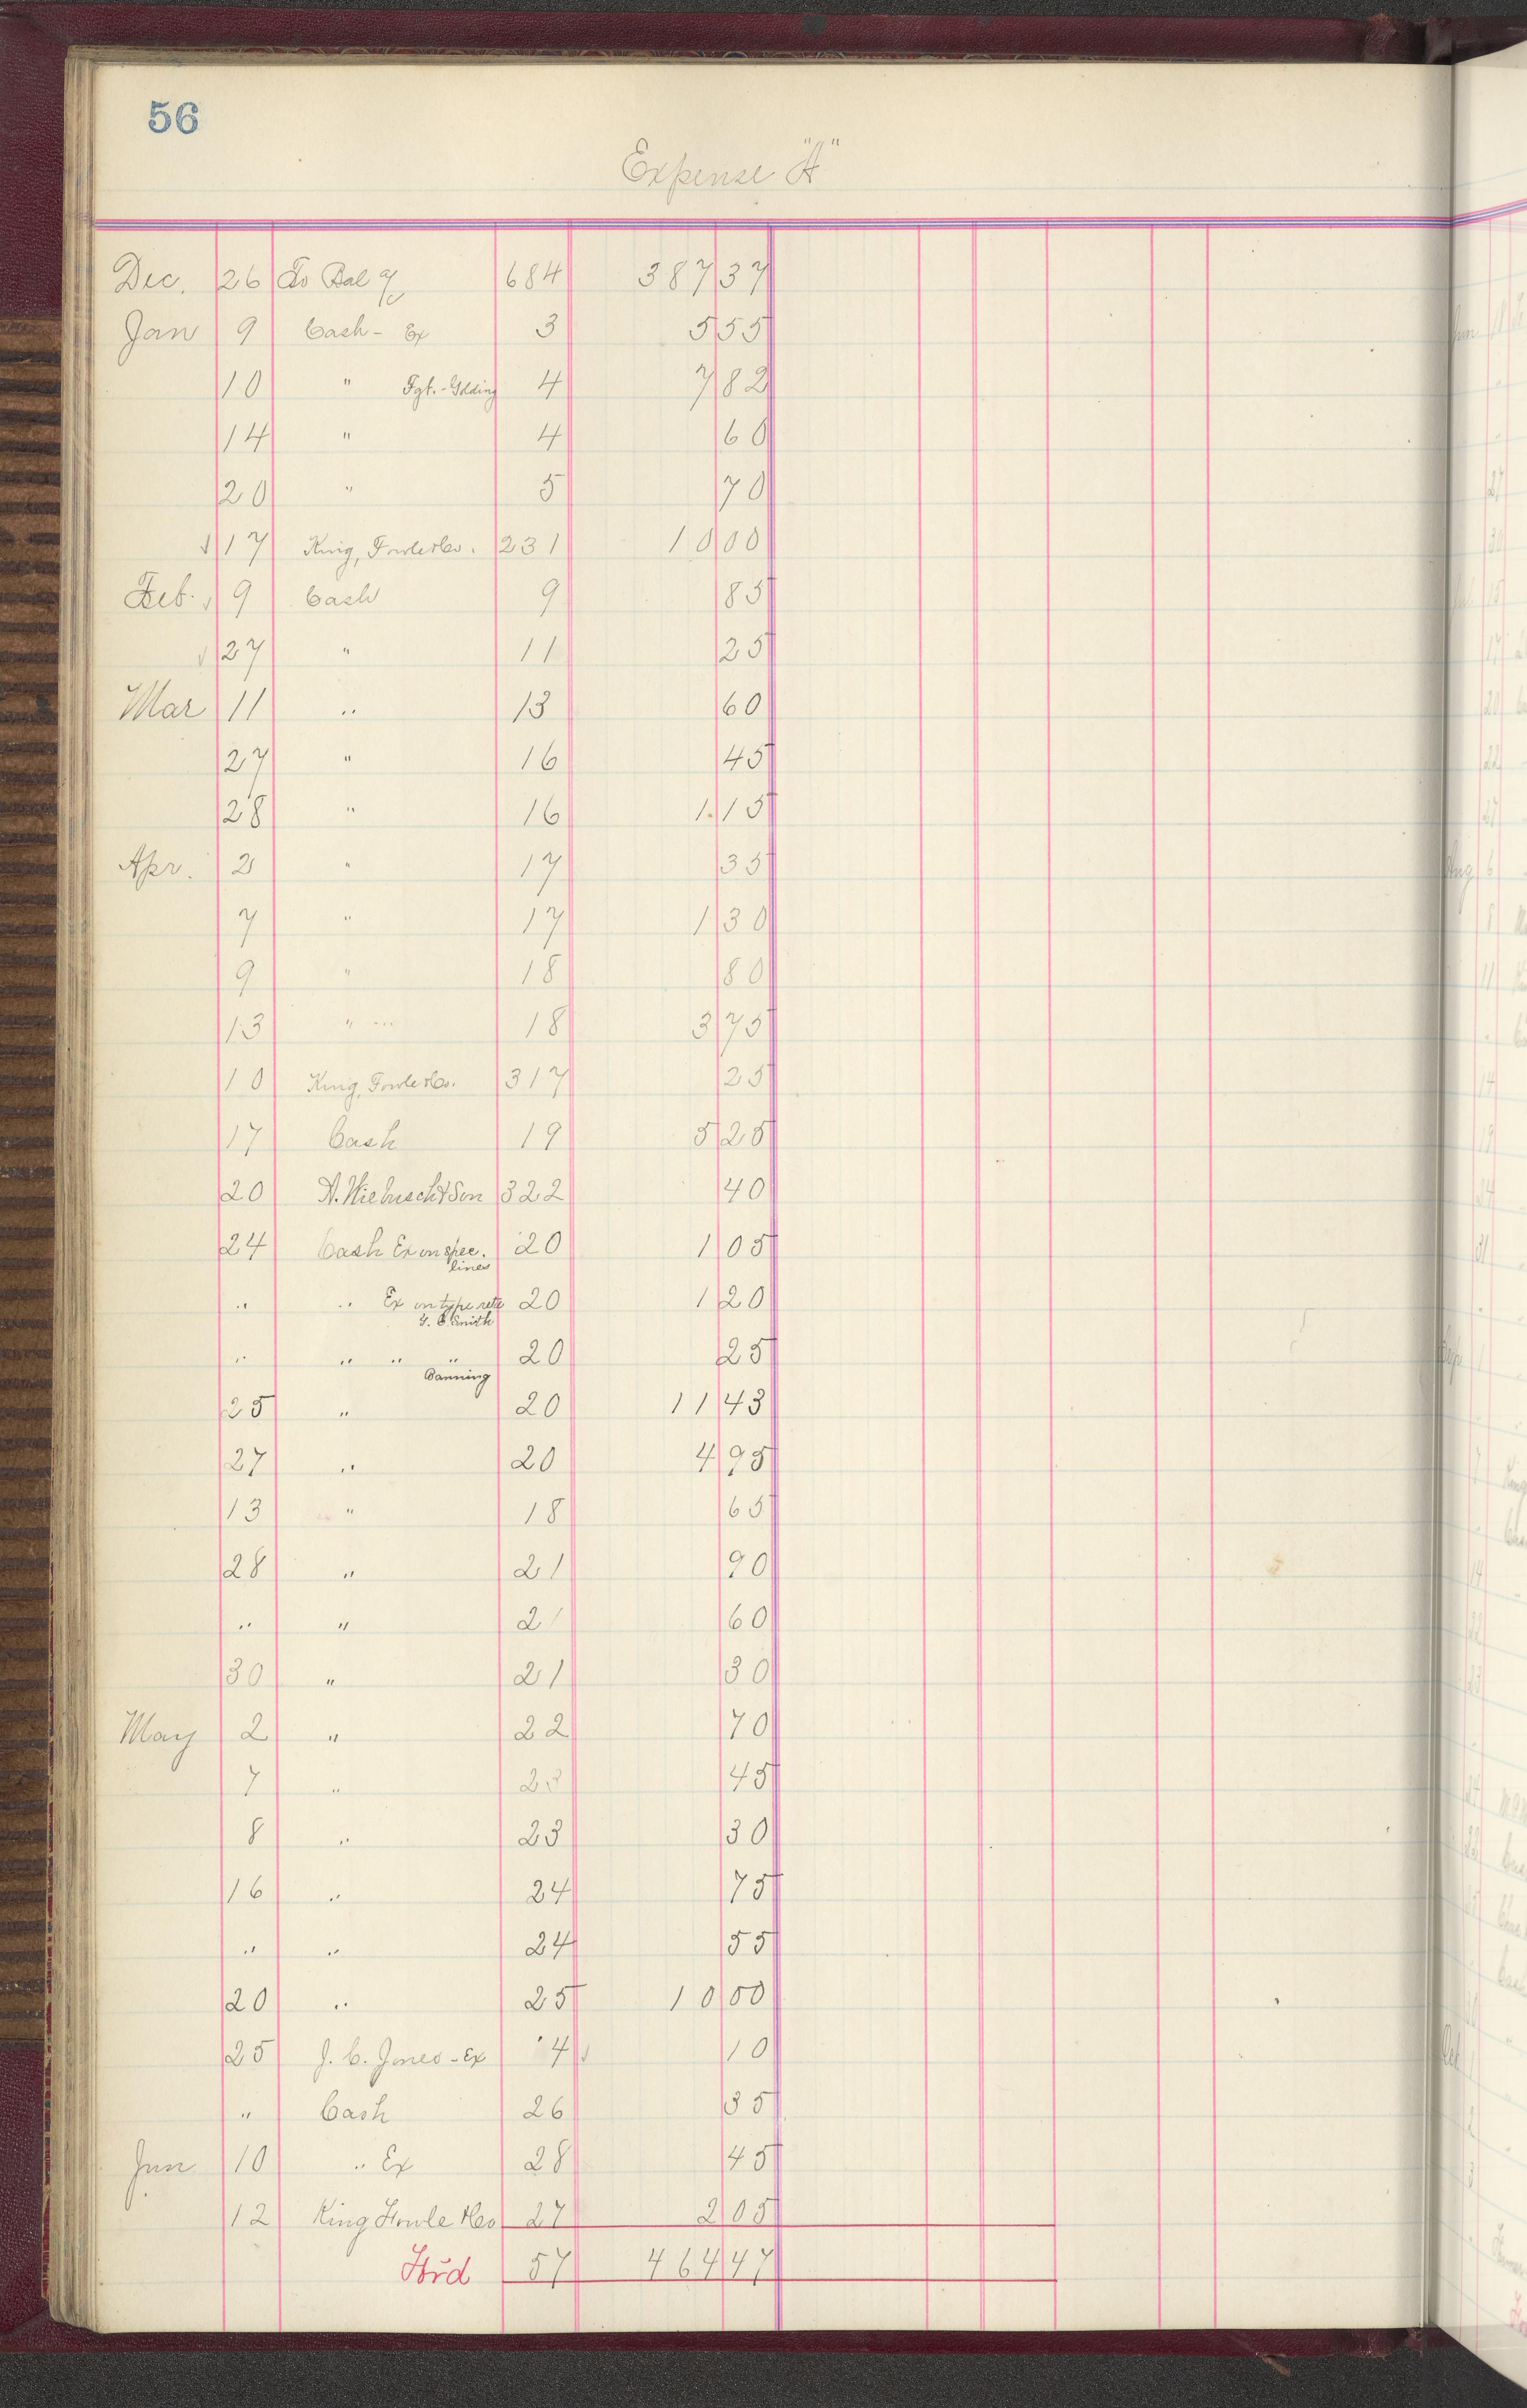 56
Expense "A"
Dec. 26 To Bal 684 387 37
Jan 9 Cash - Ex 3 5 55
10 " Fgt. - Golding 4 7 82
14 " 4 60
20 " 5 70
√ 17 King, Fowle & Co. 231 10 00
Feb. √ 9 Cash 9 85
√ 27 " 11 25
Mar 11 " 13 60
27 " 16 45
28 " 16 1.15
Apr. 2 " 17 35
7 " 17 1 30
9 " 18 80
13 " 18 3 75
10 King, Fowle & Co. 317 25
17 Cash 19 5 25
20 & Son 322 40
24 Cash Ex on spec. 20 1 05
lines
" " Ex on type retd 20 1 20
Smith
" " " " 20 25
Banning
25 " 20 11 43
27 " 20 4 95
13 " 18 65
28 " 21 90
" " 21 60
30 " 21 30
May 2 " 22 70
7 " 23 45
8 " 23 30
16 " 24 75
" " 24 55
20 " 25 10 00
25 J. C. Jones - Ex 4 √ 10
" Cash 26 35
Jun 10 " Ex 28 45
12 King Fowle & Co 27 2 05
For'd 57 464 47